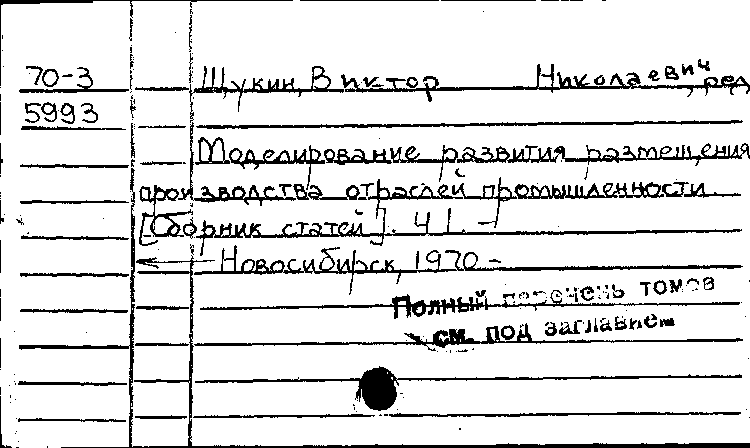 70-3 Щукин, Виктор Николаевич, ред
5993
Моделирование развития размещения
производства отраслей промышленности.
[Сборник статей]. Ч 1. –
Новосибирск, 1970 –
Полный перечень томов
см. под заглавием